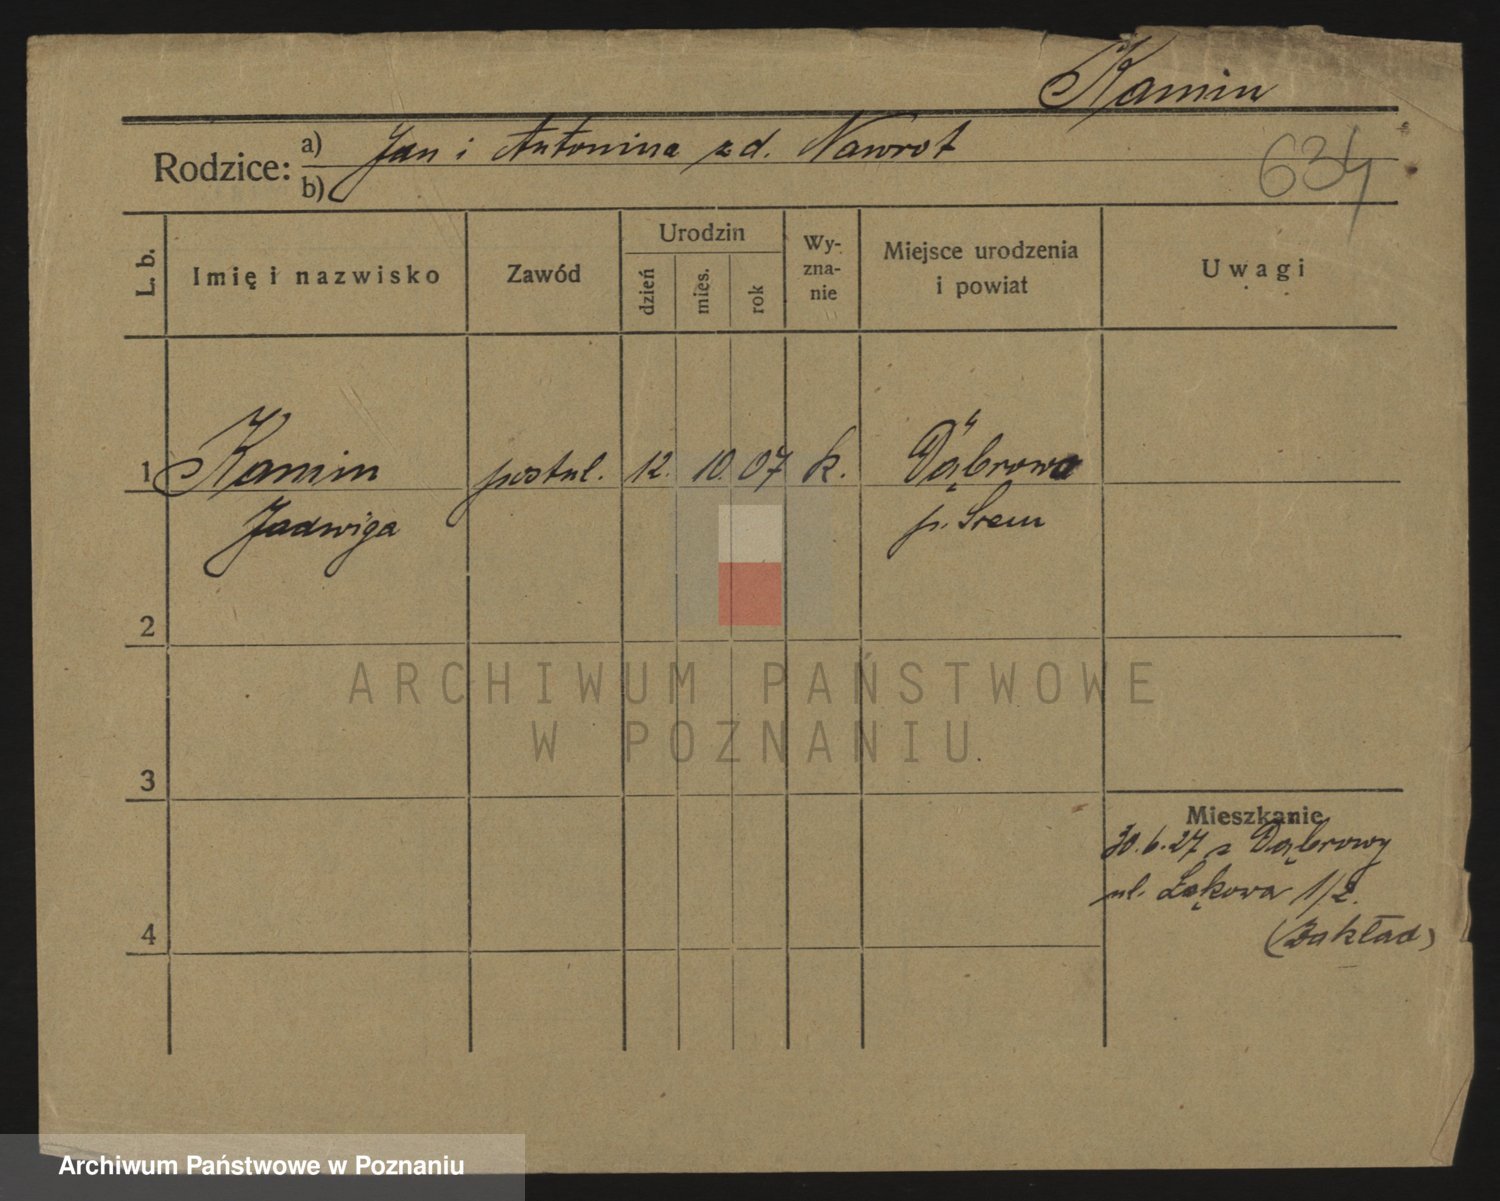 Kamin
Rodzice: a) Jan i Antonina z d. Nawrot
b)
634
L. b.
Imię i nazwisko
Zawód
Urodzin
dzień
mies.
rok
Wy-
zna-
nie
Miejsce urodzenia
i powiat
Uwagi
1 Kamin postul. 12. 10. 07 k. Dąbrowa
Jadwiga p. Śrem
2
3
4
Mieszkanie
30.6.27 z Dąbrowy
ul. Łąkowa 1/2.
(Zakład)
ARCHIWUM PAŃSTWOWE
W POZNANIU
Archiwum Państwowe w Poznaniu